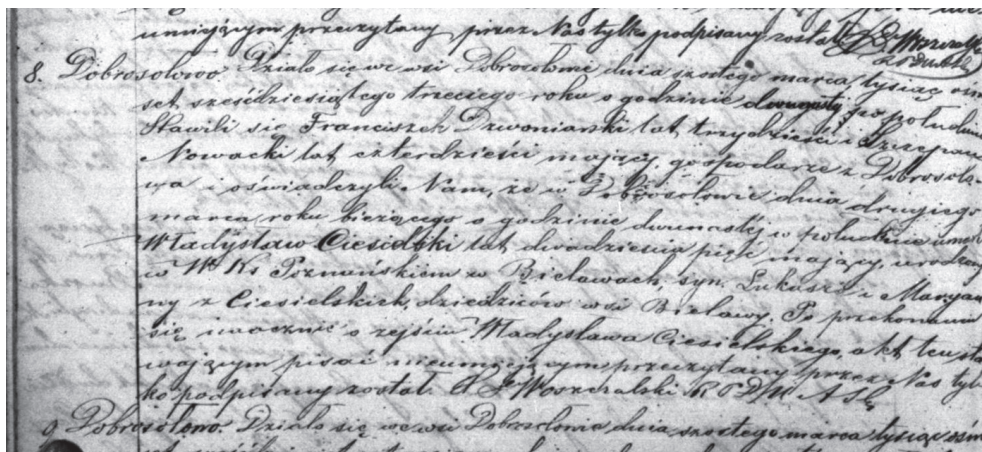 umiejącym przeczytany, przez Nas tylko podpisany został
8. Dobrosołowo. Działo się we wsi Dobrosołowie dnia szóstego marca tysiąc ośm
set sześćdziesiątego trzeciego roku o godzinie dwunastej po południu
Stawili się Franciszek Dzwoniarski lat trzydzieści i Szczepan
Nowacki lat czterdzieści mający, gospodarze z Dobrosoło-
wa i oświadczyli Nam, że w Dobrosołowie dnia drugiego
marca roku bieżącego o godzinie dwunastej w południe umarł
Władysław Ciesielski lat dwadzieścia pięć mający, urodzony
w W. Ks. Poznańskiem w Bielawach, syn Łukasza i Maryan
ny z Ciesielskich, dziedziców wsi Bielawy. Po przekonaniu
się naocznie o zejściu Władysława Ciesielskiego, akt ten sta
wającym pisać nieumiejącym przeczytany przez Nas tyl
ko podpisany został. Woszczalski
9. Dobrosołowo. Działo się we wsi Dobrosołowie dnia szóstego marca tysiąc ośm